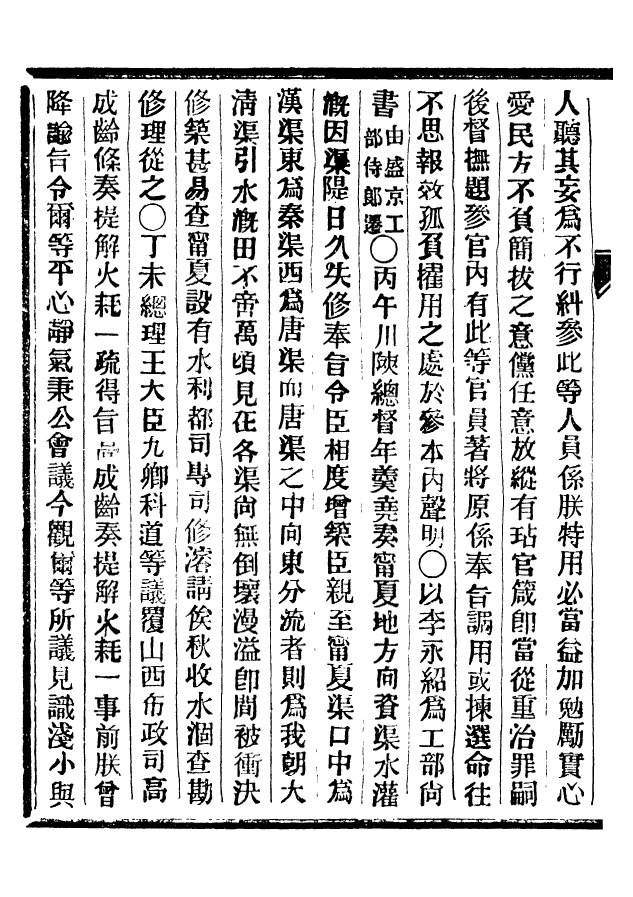 人聽其妄為不行糾參此等人員係朕特用必當益加勉勵實心
愛民方不負簡拔之意儻任意放縱有玷官箴卽當從重治罪嗣
後督撫題參官內有此等官員著將原係奉旨調用或揀選命往
不思報效孤負擢用之處於參本內聲明〇以李永紹為工部尚
書由盛京工部侍郎遷〇丙午川陝總督年羹堯奏甯夏地方向資渠水灌
溉因渠隄日久失修奉旨令臣相度增築臣親至甯夏渠口中為
漢渠東為秦渠西為唐渠而唐渠之中向東分流者則為我朝大
淸渠引水溉田不啻萬頃見在各渠尚無倒壞漫溢卽間被衝決
修築甚易查甯夏設有水利都司專司修濬請俟秋收水涸查勘
修理從之〇丁未總理王大臣九卿科道等議覆山西布政司高
成齡條奏提解火耗一疏得旨高成齡奏提解火耗一事前朕曾
降諭旨令爾等平心靜氣秉公會議今觀爾等所議見識淺小與